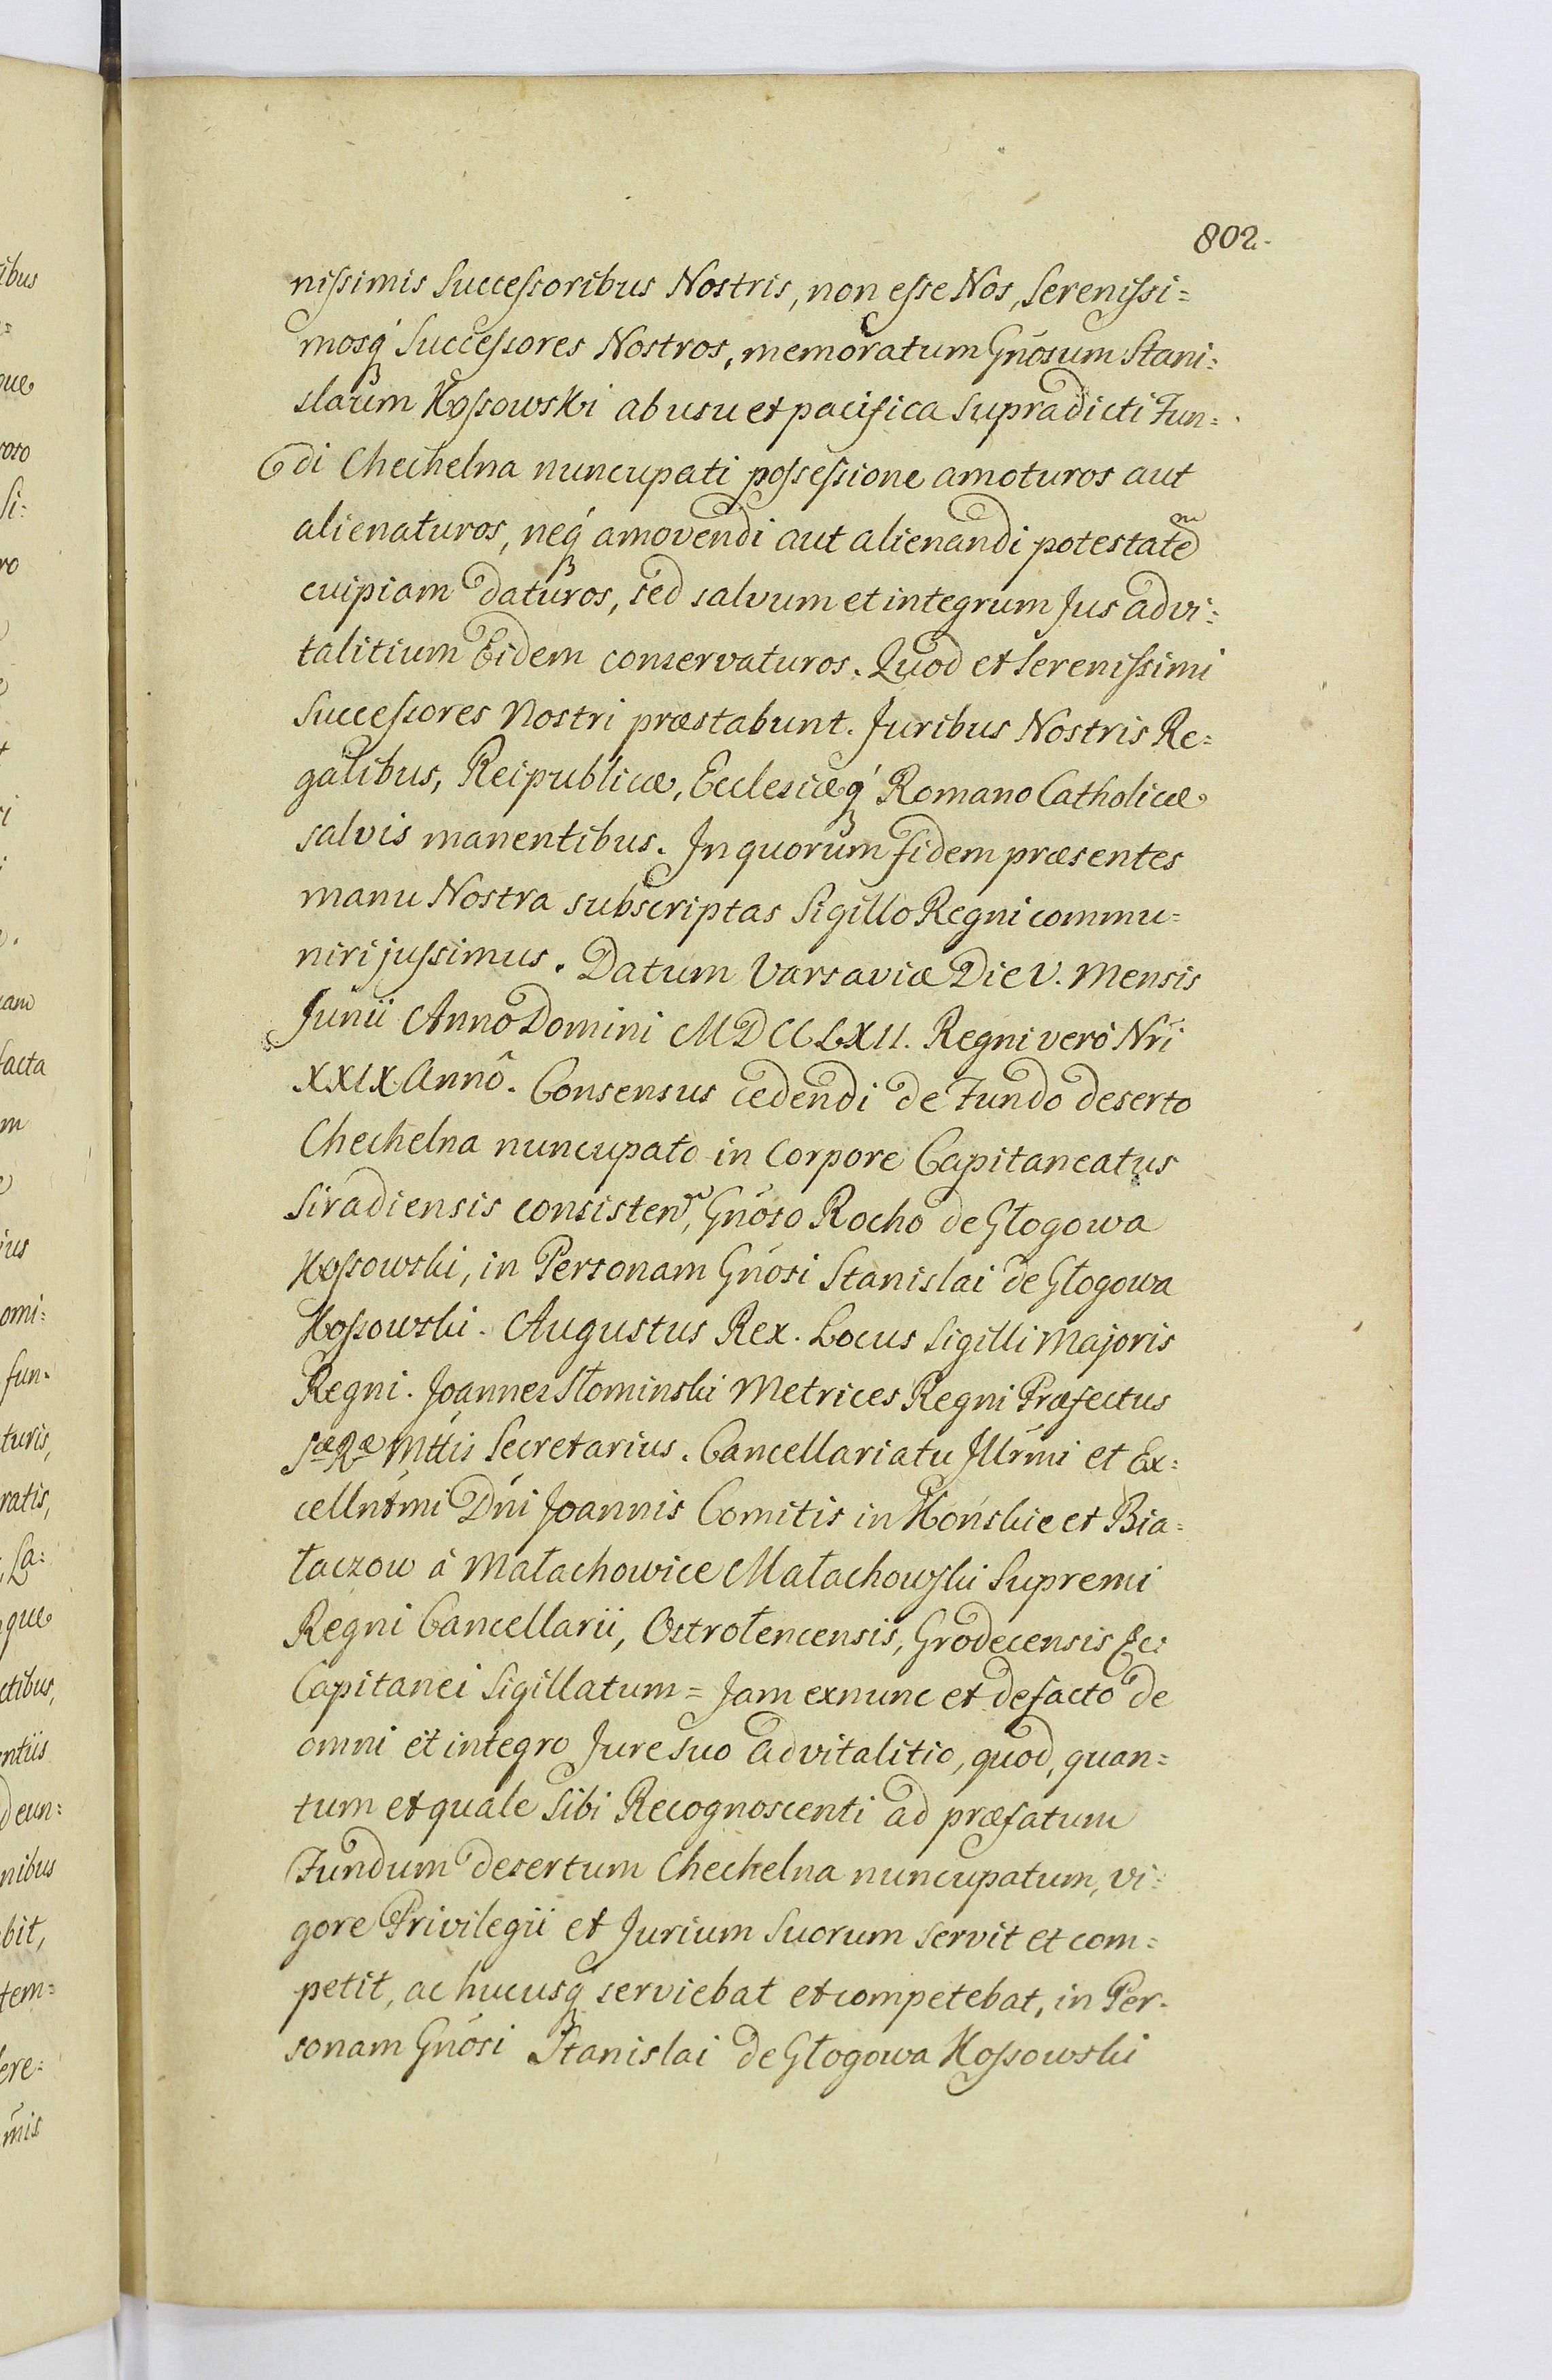 802.
nissimis Successoribus Nostris, non esse Nos, Serenissi=
mosq́ Successores Nostros, memoratum Gnósum Stani=
slaum Kossowski ab usu et pacifica supradicti Fun=
di Chechelna nuncupati possessione amoturos aut
alienaturos, neq́ amovendi aut alienandi potestatem
cuipiam daturos, sed salvum et integrum Jus advi=
talitium Eidem conservaturos. Quod et Serenissimi
Successores Nostri præstabunt. Juribus Nostris Re=
galibus, Reipublicæ, Ecclesiæq́ Romano Catholicæ
salvis manentibus. In quorum fidem præsentes
manu Nostra subscriptas Sigillo Regni commu=
niri jussimus. Datum Varsaviæ Die V. Mensis
Junii Anno Domini MDCCLXII. Regni verò Nri
XXIX Annô. Consensus cedendi de Fundo deserto
Chechelna nuncupato in Corpore Capitaneatus
Siradiensis consisten, Gnóso Rocho de Głogowa
Kossowski, in Personam Gnósi Stanislai de Głogowa
Kossowski. Augustus Rex. Locus Sigilli Majoris
Regni. Joannes Słominski Metrices Regni Præfectus
Sæ Ræ Mttis Secretarius. Cancellariatu Illrmi et Ex=
cellntmi Dni Joannis Comitis in Końskie et Bia=
łaczow à Małachowice Małachowski Supremi
Regni Cancellarii, Ostrołencensis, Grodecensis &c:
Capitanei Sigillatum = Jam exnunc et defacto de
omni et integro Jure suo advitalitio, quod, quan=
tum et quale Sibi Recognoscenti ad præfatum
Fundum desertum Chechelna nuncupatum, vi=
gore Privilegii et Jurium Suorum servit et com=
petit, ac hucusq́ serviebat et competebat, in Per=
sonam Gnósi Stanislai de Głogowa Kossowski